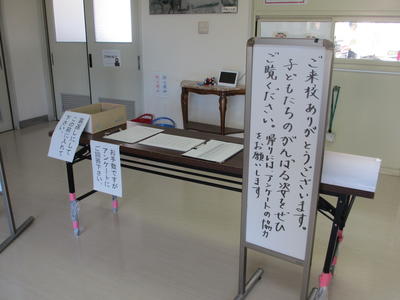 ご来校ありがとうございます。
子どもたちのがんばる姿をぜひ
ご覧ください。帰りには、アンケートの協力
をお願いします
お手数ですが
アンケートに
ご回答下さい。
この箱に入れて
下さい。